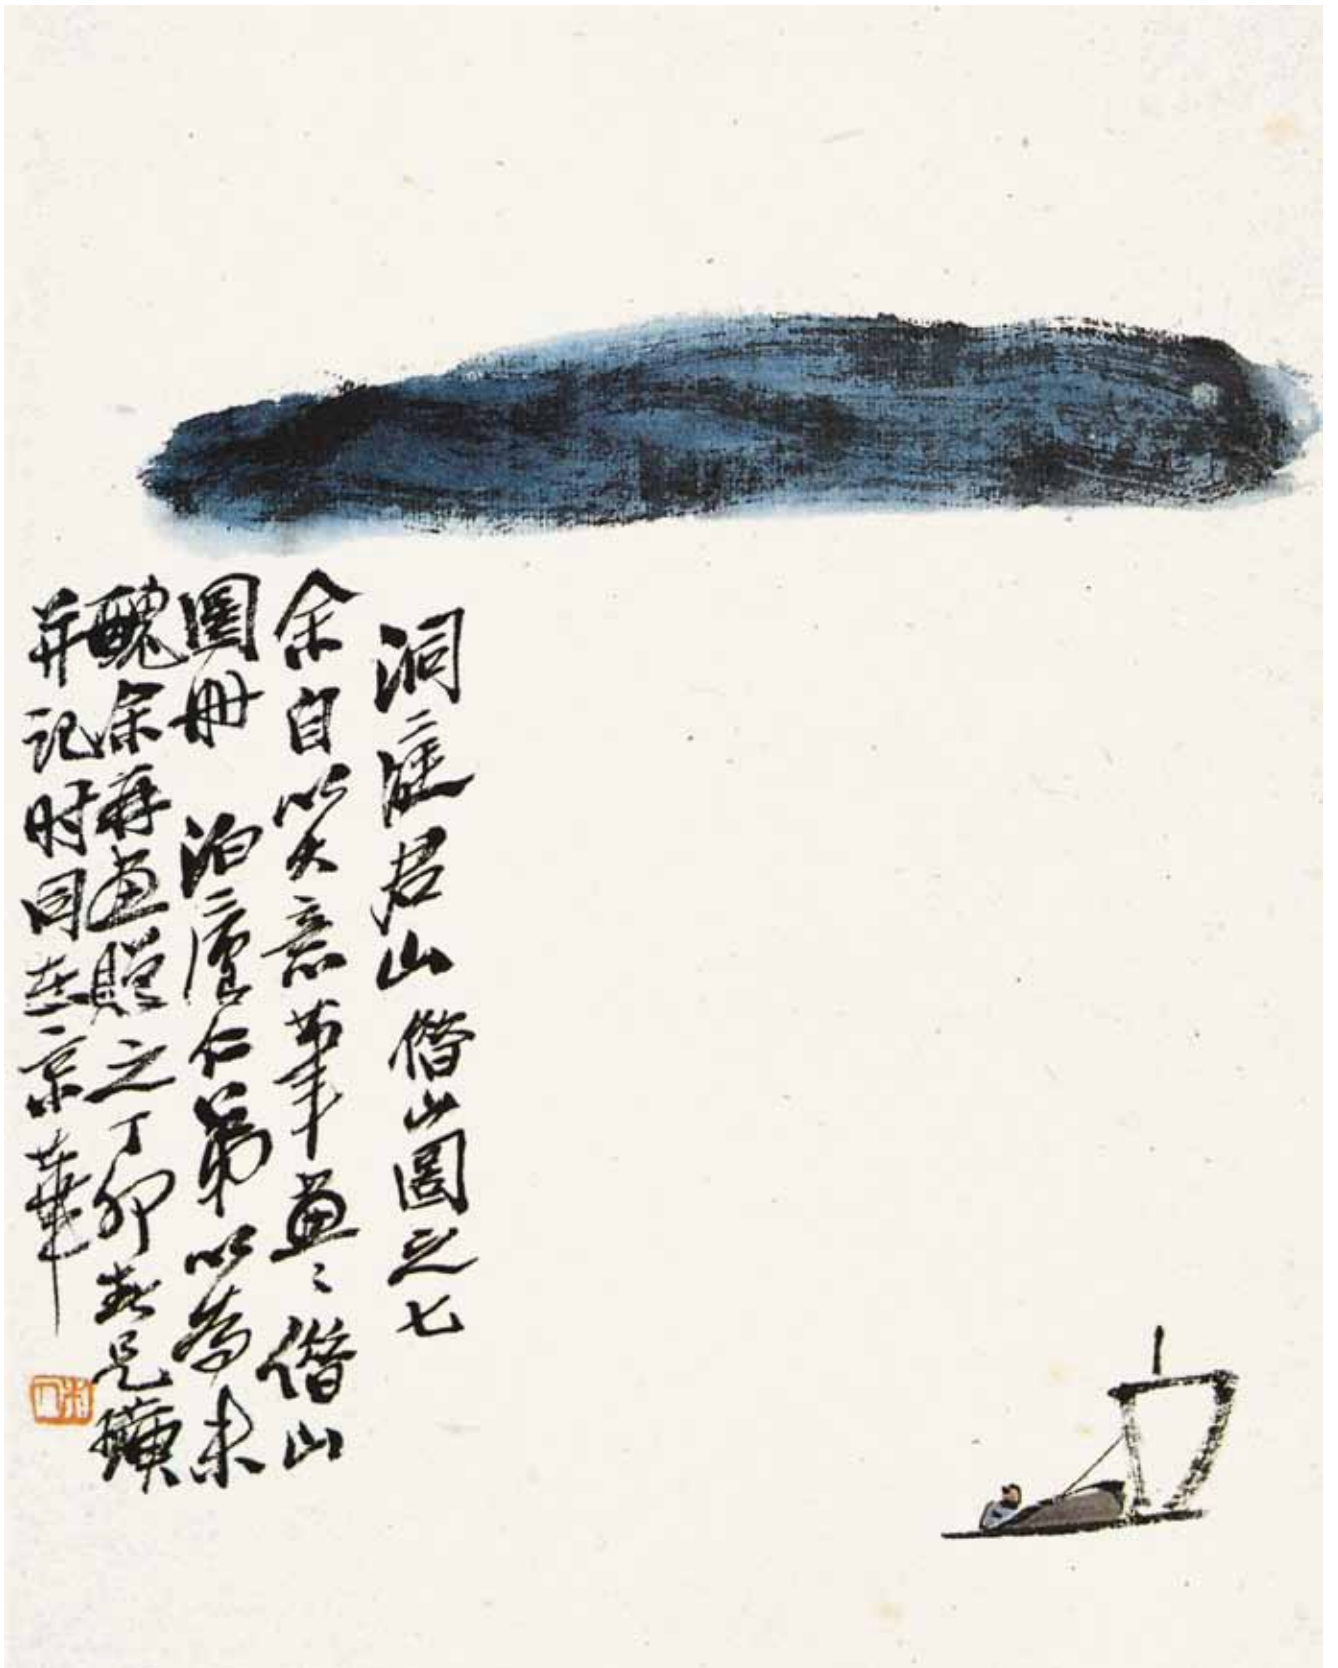 洞庭君山借山圖之七
余自以大意筆畫〻借山
圖冊 泊廬仁弟以為未
醜余再畫贈之丁卯春兄璜
并記时同在京華